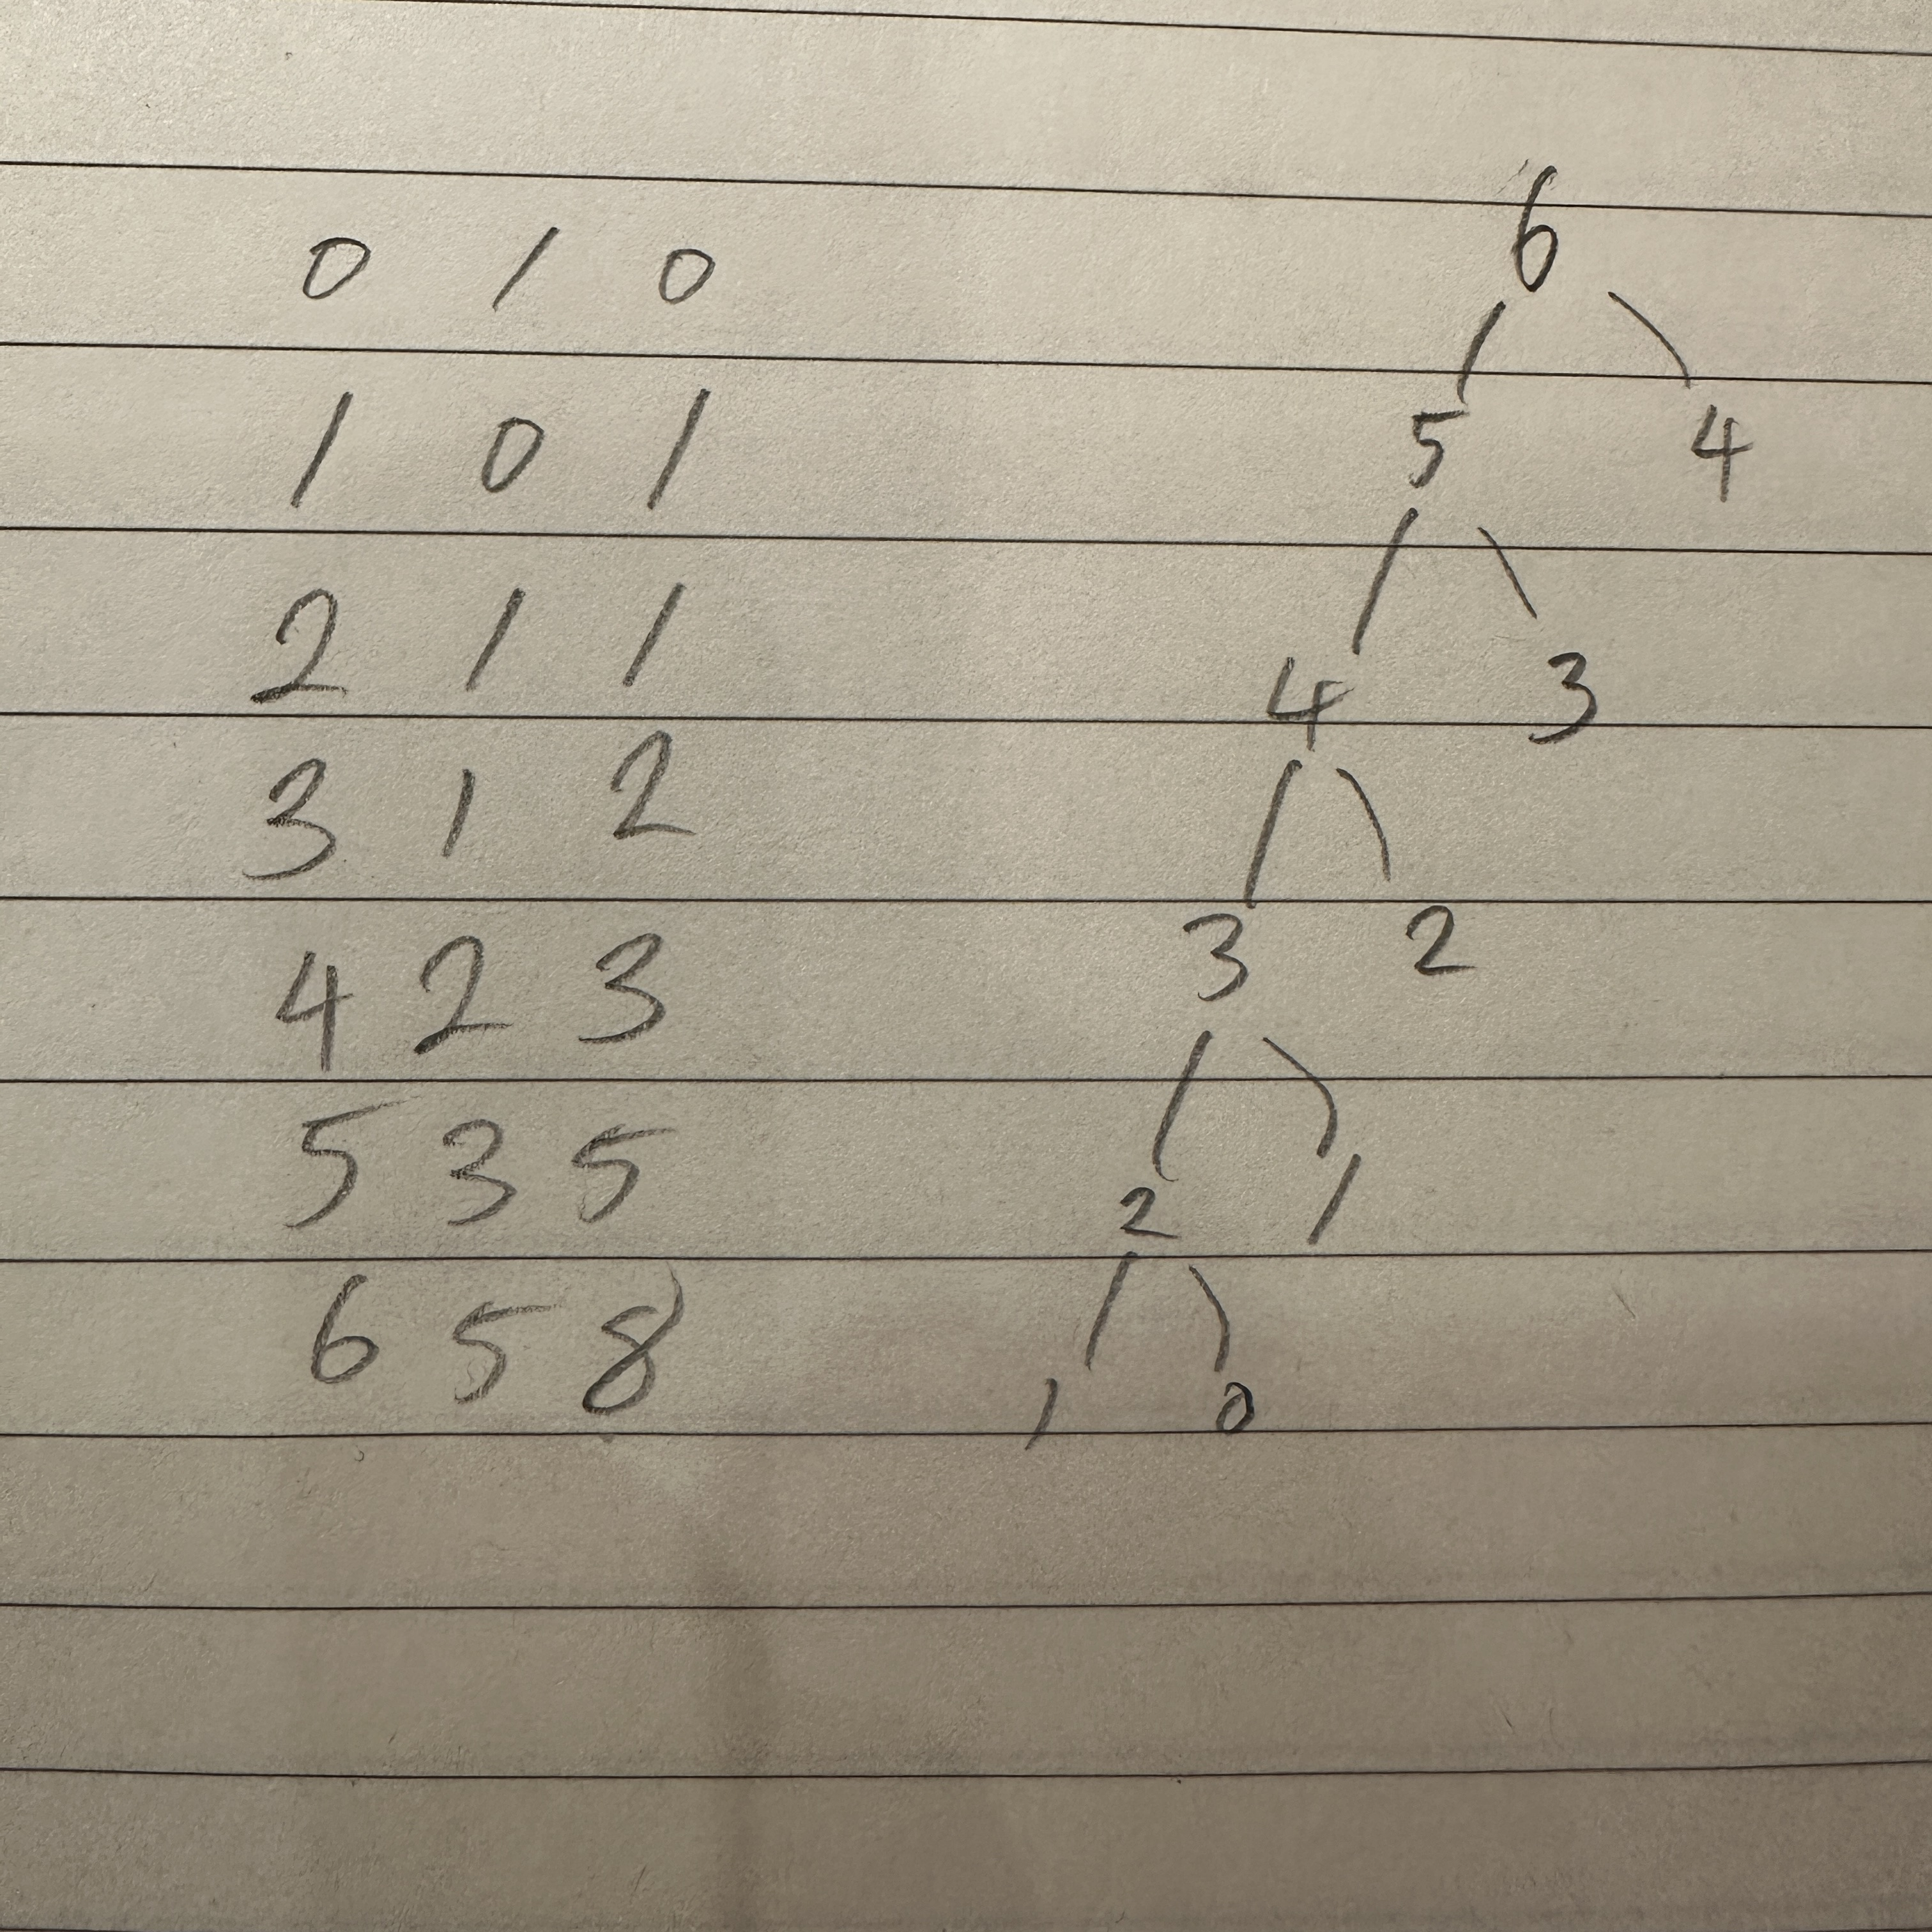 0 1 0
1 0 1
2 1 1
3 1 2
4 2 3
5 3 5
6 5 8
6
5 4
4 3
3 2
2 1
1 0